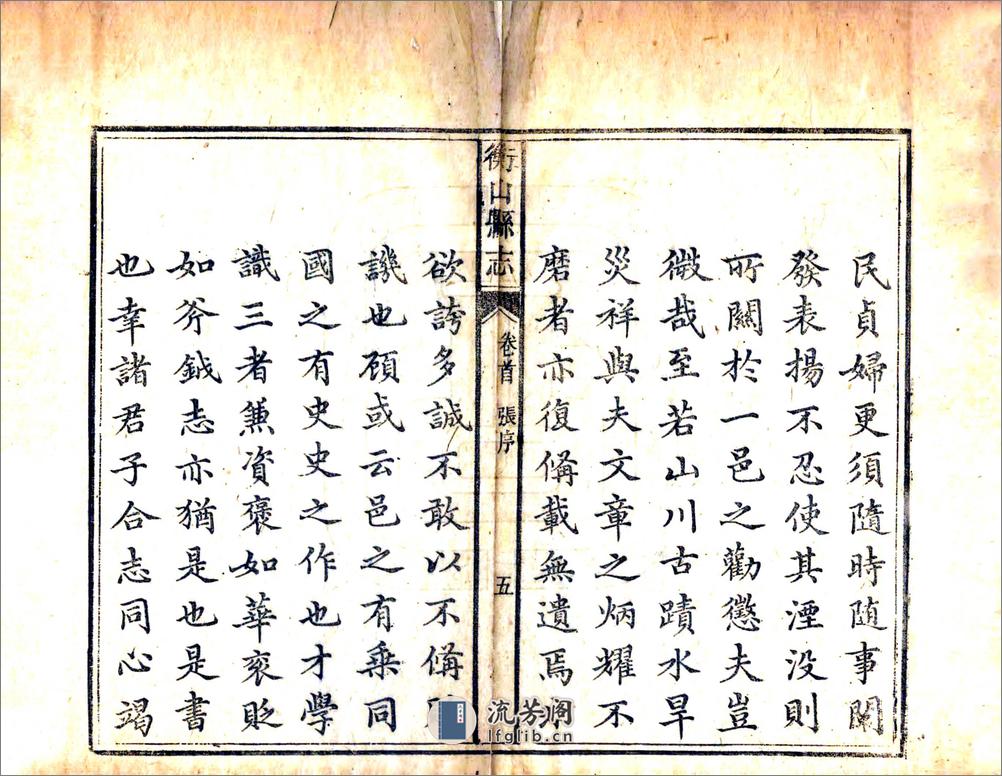 民貞婦更須隨時随事闡
發表揚不忍使其湮没則
所關於一邑之勸懲夫豈
微哉至若山川古蹟水旱
災祥與夫文章之炳耀不
磨者亦復偹載無遺焉
衡山縣志
卷首 張序
五
欲誇多誠不敢以不偹
譏也顧或云邑之有乗同
國之有史史之作也才學
識三者兼資褒如華衮貶
如斧鉞志亦猶是也是書
也幸諸君子合志同心竭
流芳阁
lfglib.cn